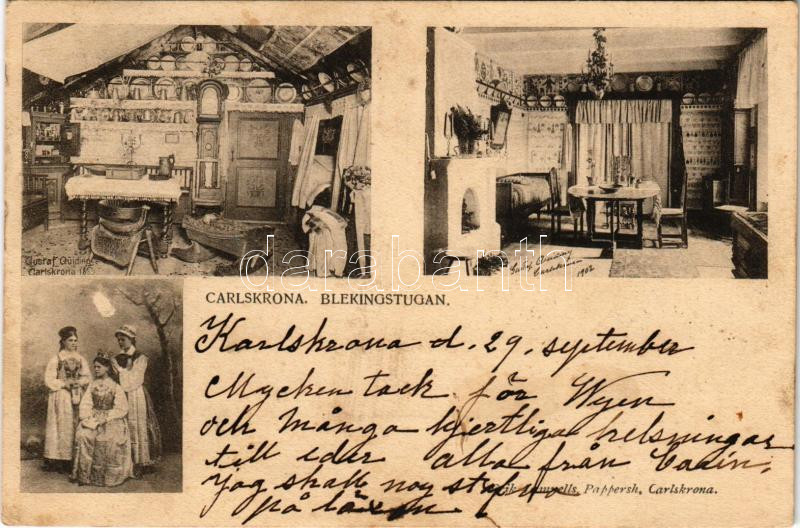 Gustaf Guiding
Carlskrona 18
Carlskrona
1902
darabanth
CARLSKRONA. BLEKINGSTUGAN.
Karlskrona d. 29. september
Mycken tack för Wyen
och många hjertliga helsningar
till eder alla från
Jag skall nog
på
Pappersh, Carlskrona.